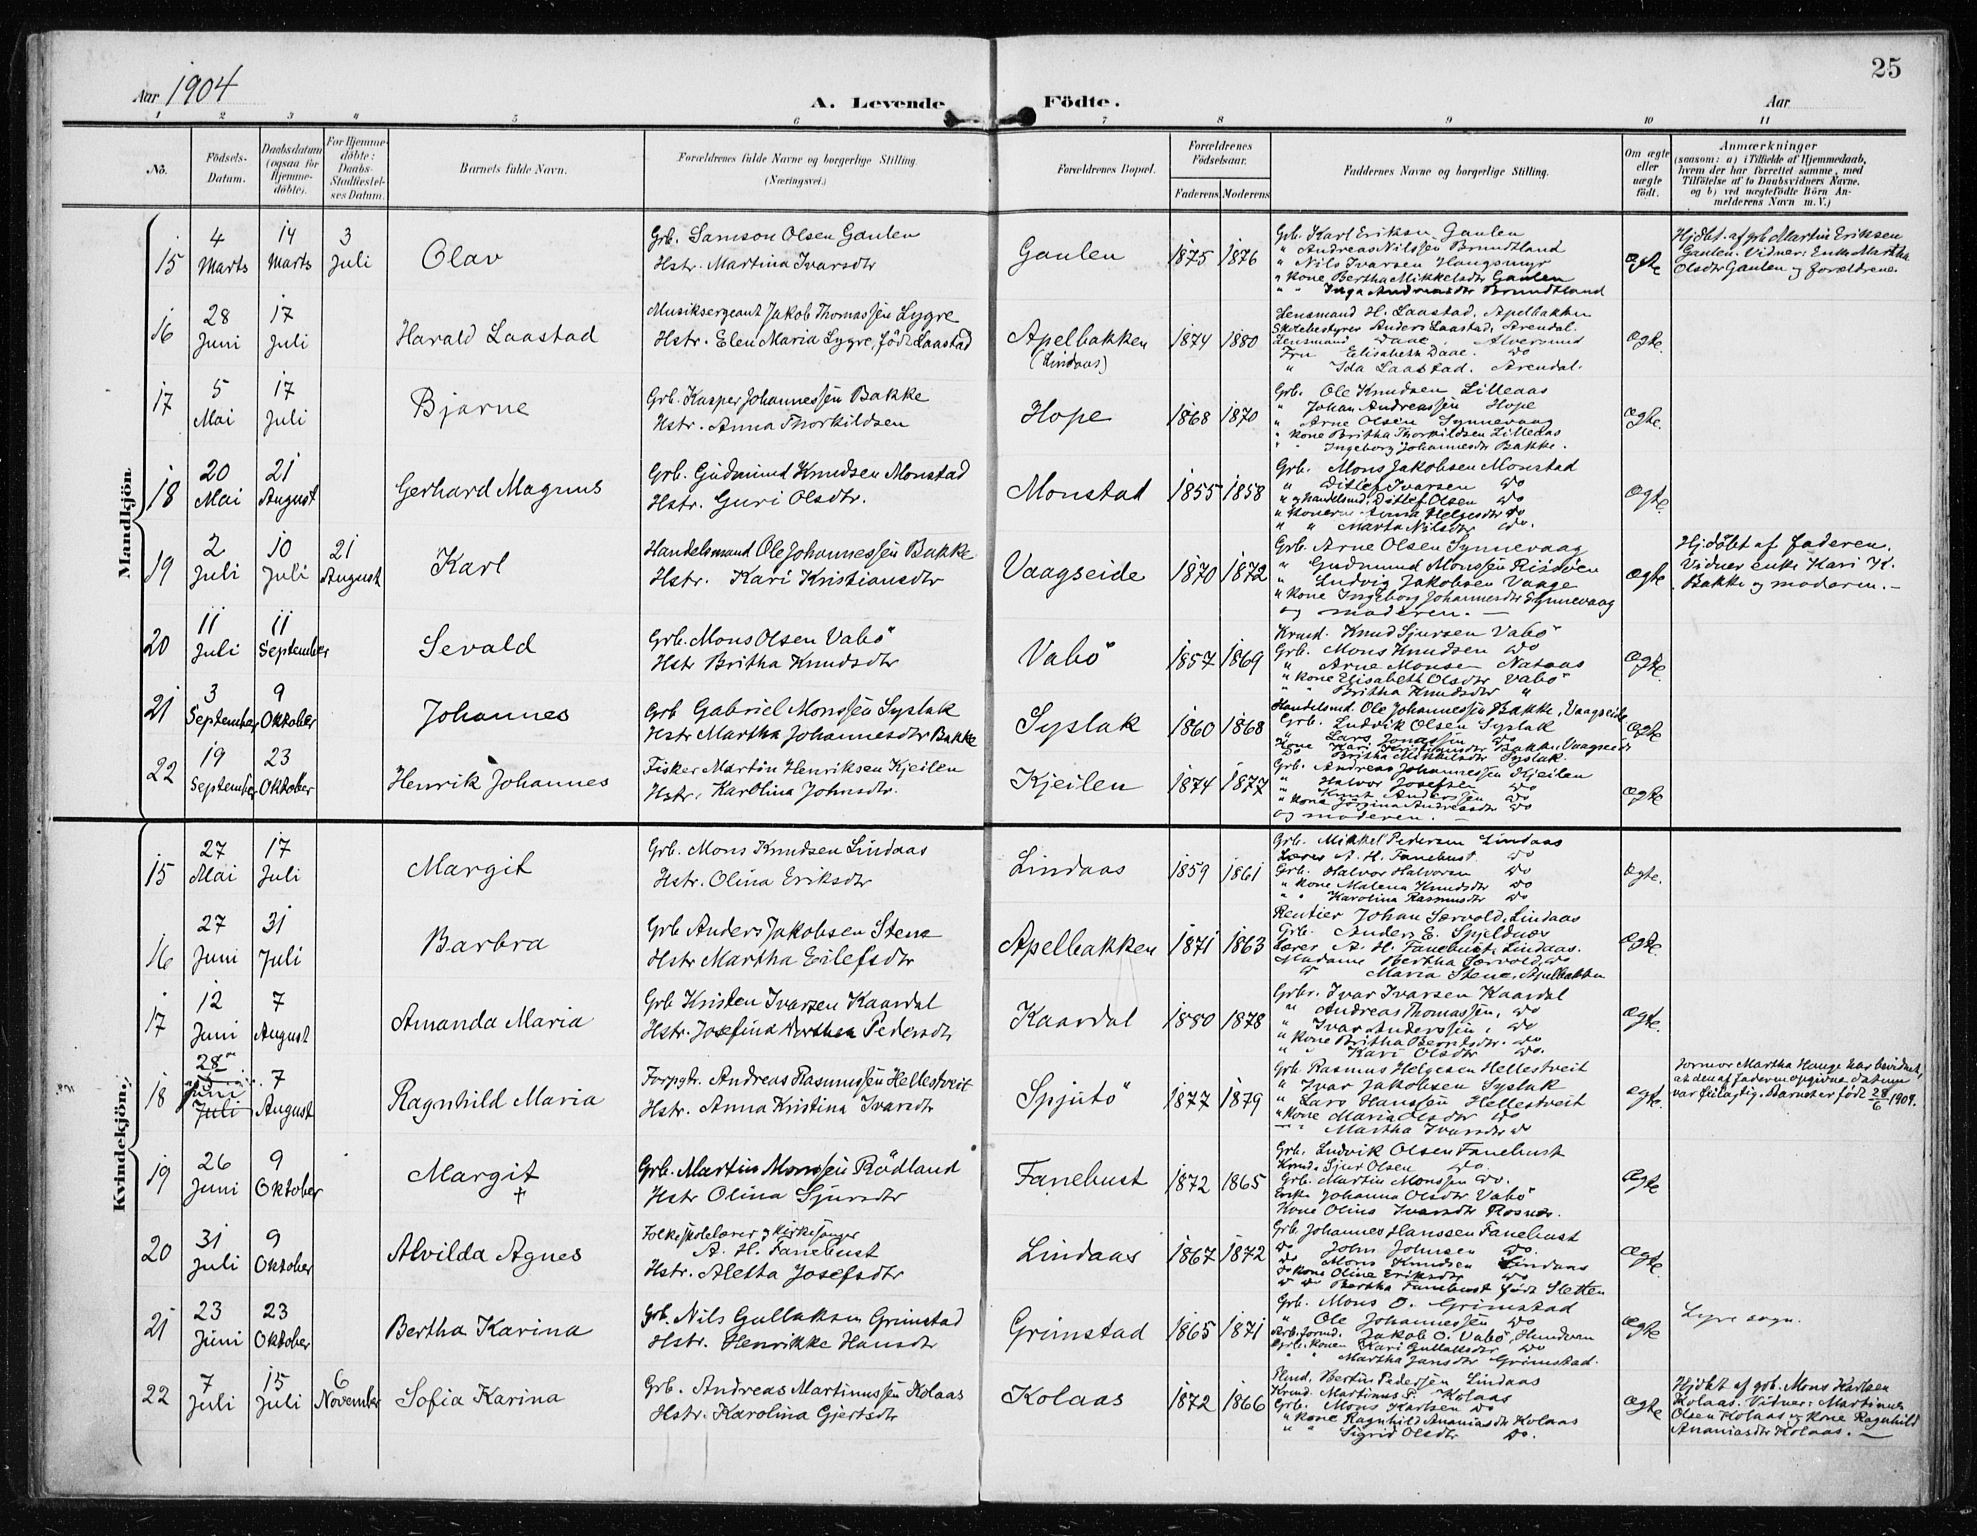 25
Aar 1904 A. Levende Födte. Aar
1 2 3 4 5 6 7 8 9 10 11
No. Födsels-Datum. Daabsdatum (ogsaa for Hjemme-döbte). For Hjemme-döbte: Daabs-Stadfæstel-ses Datum. Barnets fulde Navn. Forældrenes fulde Navne og borgerlige Stilling. (Næringsvei.) Forældrenes Bopæl. Forældrenes Födselsaar. Faderens Moderens Faddernes Navne og borgerlige Stilling. Om ægte eller uægte födt. Anmærkninger (saasom: a) i Tilfælde af Hjemmedaab, hvem der har forrettet samme, med Tilföielse af to Daabsvidners Navne, og b) ved uægtefödte Börn An-melderens Navn m. V.)
Mandkjön
15 4 Marts 14 Marts 3 Juli Olav
Grb. Samson Olsen Gaulen
Hstr. Martina Ivarsdtr
Gaulen 1875 1876
Grb. Karl Eriksn Gaulen
" Andreas Nilssen Brundtland
" Nils Ivarsen Haugsmyr
" Kone Bertha Mikkelsdtr Gaulen
" " Inga Andreasdtr Brundtland
ægte
Hjdbt. af grb. Martin Eriksen
Gaulen. Vidner: Enke Martha
Olsdtr Gaulen og forældrene.
16 28 Juni 17 Juli Harald Laastad
Musiksergeant Jakob Thomassen Lygre
Hstr. Elen Maria Lygre, født Laastad
Apelbakken (Lindaas) 1874 1880
Lensmand H. Laastad, Apelbakken
Skolebestyrer Anders Laastad, Arendal.
Lensmand Daae, Alversund
Fru Elisabeth Daae. do
" Ida Laastad. Arendal.
ægte.
17 5 Mai 17 Juli Bjarne
Grb. Kasper Johannessen Bakke
Hstr. Anna Thorkildsen
Hope 1868 1870
Grb. Ole Knudsen Lilleaas
" Johan Andreassen Hope
" Arne Olsen Synnevaag
" Kone Britha Thorkildsen Lilleaas
" " Ingeborg Johannesdtr Bakke.
ægte.
18 20 Mai 21 August Gerhard Magnus
Grb. Gudmund Knudsen Monstad
Hstr. Guri Olsdtr.
Monstad 1855 1858
Grb. Mons Jakobsen Monstad
" Ditlef Ivarsen do
" og Handelsmd. Ditlef Olsen do
" Konerne Anna Helgesdtr do
" " Marta Nilsdtr do.
ægte.
19 2 Juli 10 Juli 21 August Karl
Handelsmand Ole Johannessen Bakke
Hstr. Kari Kristiansdtr
Vaagseide 1870 1872
Grb. Arne Olsen Synnevaag
" Gudmund Monssen Risöön
" Ludvig Jakobsen Vaage
" Kone Ingeborg Johannesdtr Synnevaag
og moderen. —
ægte
Hjdöbt af faderen.
Vidner enke Kari K.
Bakke og moderen. —
20 11 Juli 11 September Sevald
Grb. Mons Olsen Vabö
Hstr Britha Knudsdtr
Vabö 1857 1869
Krmd. Knud Sjursen Vabö
Grb. Mons Knudsen do
" Arne Monsen Nataas
" Kone Elisabeth Olsdtr Vabö
" " Britha Knudsdtr "
ægte.
21 3 September 9 Oktober Johannes
Grb Gabriel Monssen Syslak
Hstr Martha Johannesdtr Bakke
Syslak 1860 1868
Handelsmd. Ole Johannessen Bakke, Vaagseide
Grb. Ludvik Olsen Syslak
" Lars Jonassen do
Kone Kari Kristiansdtr Bakke, Vaagseide
" Britha Mikkelsdtr Syslak.
ægte
22 19 September 23 Oktober Henrik Johannes
Fisker Martin Henriksen Kjeilen
Hstr. Karolina Johnsdtr.
Kjeilen 1874 1877
Grb. Andreas Johannessen Kjeilen
" Halvor Josefsen do
" Knut Anderssen do
" Kone Jörgina Andreasdtr do
og moderen. —
ægte
Kvindekjön.
15 27 Mai 17 Juli Margit
Grb. Mons Knudsen Lindaas
Hstr. Olina Eriksdtr
Lindaas 1859 1861
Grb. Mikkel Pedersen Lindaas
Lærer A. H. Fanebust. do
Grb. Halvor Halvorsen do
" Kone Malena Knudsdtr do
" " Karolina Rasmusdtr do
ægte.
16 27 Juni 31 Juli Barbra
Grb Anders Jakobsen Stene
Hstr Martha Eilefsdtr
Apelbakken 1871 1863
Rentier Johan Særvold, Lindaas
Grb. Anders E. Spjeldnæs
Lærer A. H. Fanebust, Lindaas.
Madame Bertha Særvold, do
do Maria Stene, Apelbakken
ægte.
17 12 Juni 7 August Amanda Maria
Grb Kristen Ivarsen Kaardal
Hstr. Josefina Dorthea Pedersdtr
Kaardal 1880 1878
Grbr. Ivar Ivarsen Kaardal
" Andreas Thomassen, do
" Ivar Anderssen, do
" Kone Britha Berntsdtr. do
" " Kari Olsdtr do.
ægte.
18 28 Juni Juli 7 August Ragnhild Maria
Forpgtr. Andreas Rasmussen Hellestveit
Hstr. Anna Kristina Ivarsdtr
Spjutö 1877 1879
Grb Rasmus Helgesen Hellestveit
" Ivar Jakobsen Syslak
" Lars Hanssen Hellestveit
" Kone Maria Olsdtr do
" " Martha Ivarsdtr do
ægte.
Jormor Martha Hauge har bevidnet,
at den af faderen opgivne datum
var feilagtig. Barnet er født 28/6 1904.
19 26 Juni 9 Oktober Margit †
Grb. Martin Monssen Rödland
Hstr Olina Sjursdtr
Fanebust 1872 1865
Grb. Ludvik Olsen Fanebust
Krmd. Sjur Olsen do.
Grb. Martin Monssen do.
Enke Johanna Olsdtr Vabö
Kone Olina Ivarsdtr Rosnæs.
ægte
20 31 Juli 9 Oktober Alvilda Agnes
Folkeskolelærer og Kirkesanger
A. H. Fanebust
Hstr. Aletta Josefsdtr
Lindaas 1867 1872
Grb. Johannes Hanssen Fanebust
do John Johnsen do.
do Mons Knudsen Lindaas
do Kone Oline Eriksdtr do
do do Bertha Fanebust født Sletten
ægte.
21 23 Juni 23 Oktober Bertha Karina
Grb. Nils Gullaksen Grimstad
Hstr. Henrikke Hansdtr
Grimstad 1865 1871
Grb. Mons O. Grimstad
" Ole Johannessen do
Arb.formd. Jakob O. Vabö, Hundven
Grb. konen Kari Gullaksdtr do
" " Martha Jansdtr Grimstad.
ægte
Lygre sogn.
22 7 Juli 15 Juli 6 November Sofia Karina
Grb. Andreas Martinussen Kolaas
Hstr. Karolina Gjertsdtr
Kolaas 1872 1866
Bertin Pedersen Lindaas
Krmd. Martinus P. Kolaas
Grb. Mons Karlsen do
" Kone Ragnhild Ananiasdtr Kolaas
" " Sigrid Olsdtr do.
ægte
Hjdbt af grb. Mons Karlsen
Kolaas. Vidner: Martinus
Olsen Kolaas og Kone Ragnhild
Ananiasdtr Kolaas. —